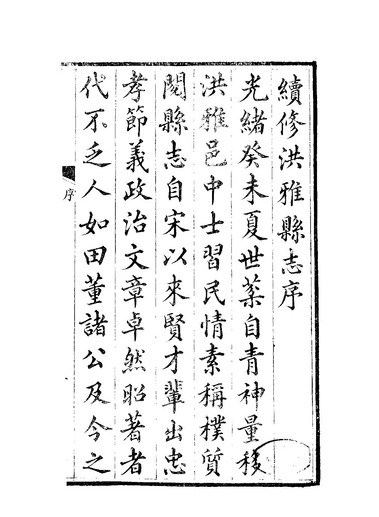 續修洪雅縣志序
光緒癸未夏世棻自青神量移
洪雅邑中士習民情素稱樸質
閱縣志自宋以來賢才輩出忠
孝節義政治文章卓然昭著者
代不乏人如田董諸公及今之
序